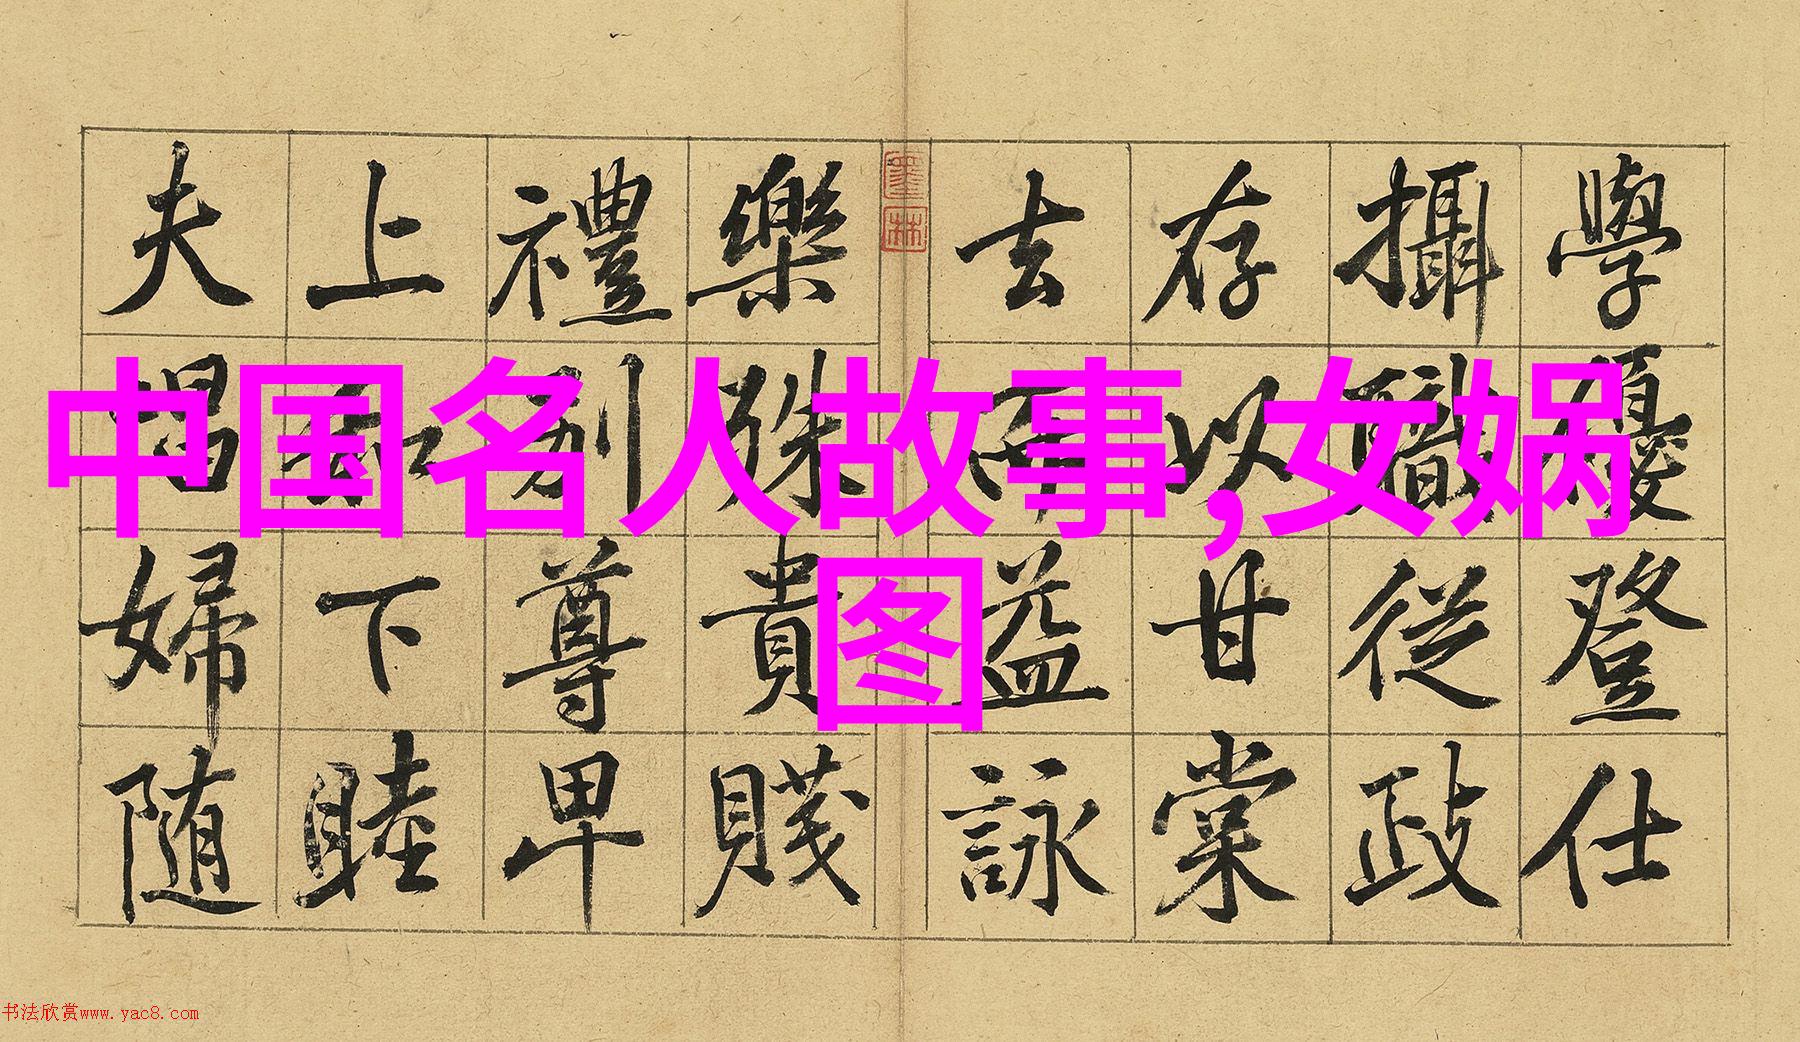 學優登仕
攝職從政
存以甘棠
去而益詠
墨林
樂殊貴賤
禮別尊卑
上和下睦
夫唱婦随
中国名人故事,女娲
图
书法欣赏www.yac8.com